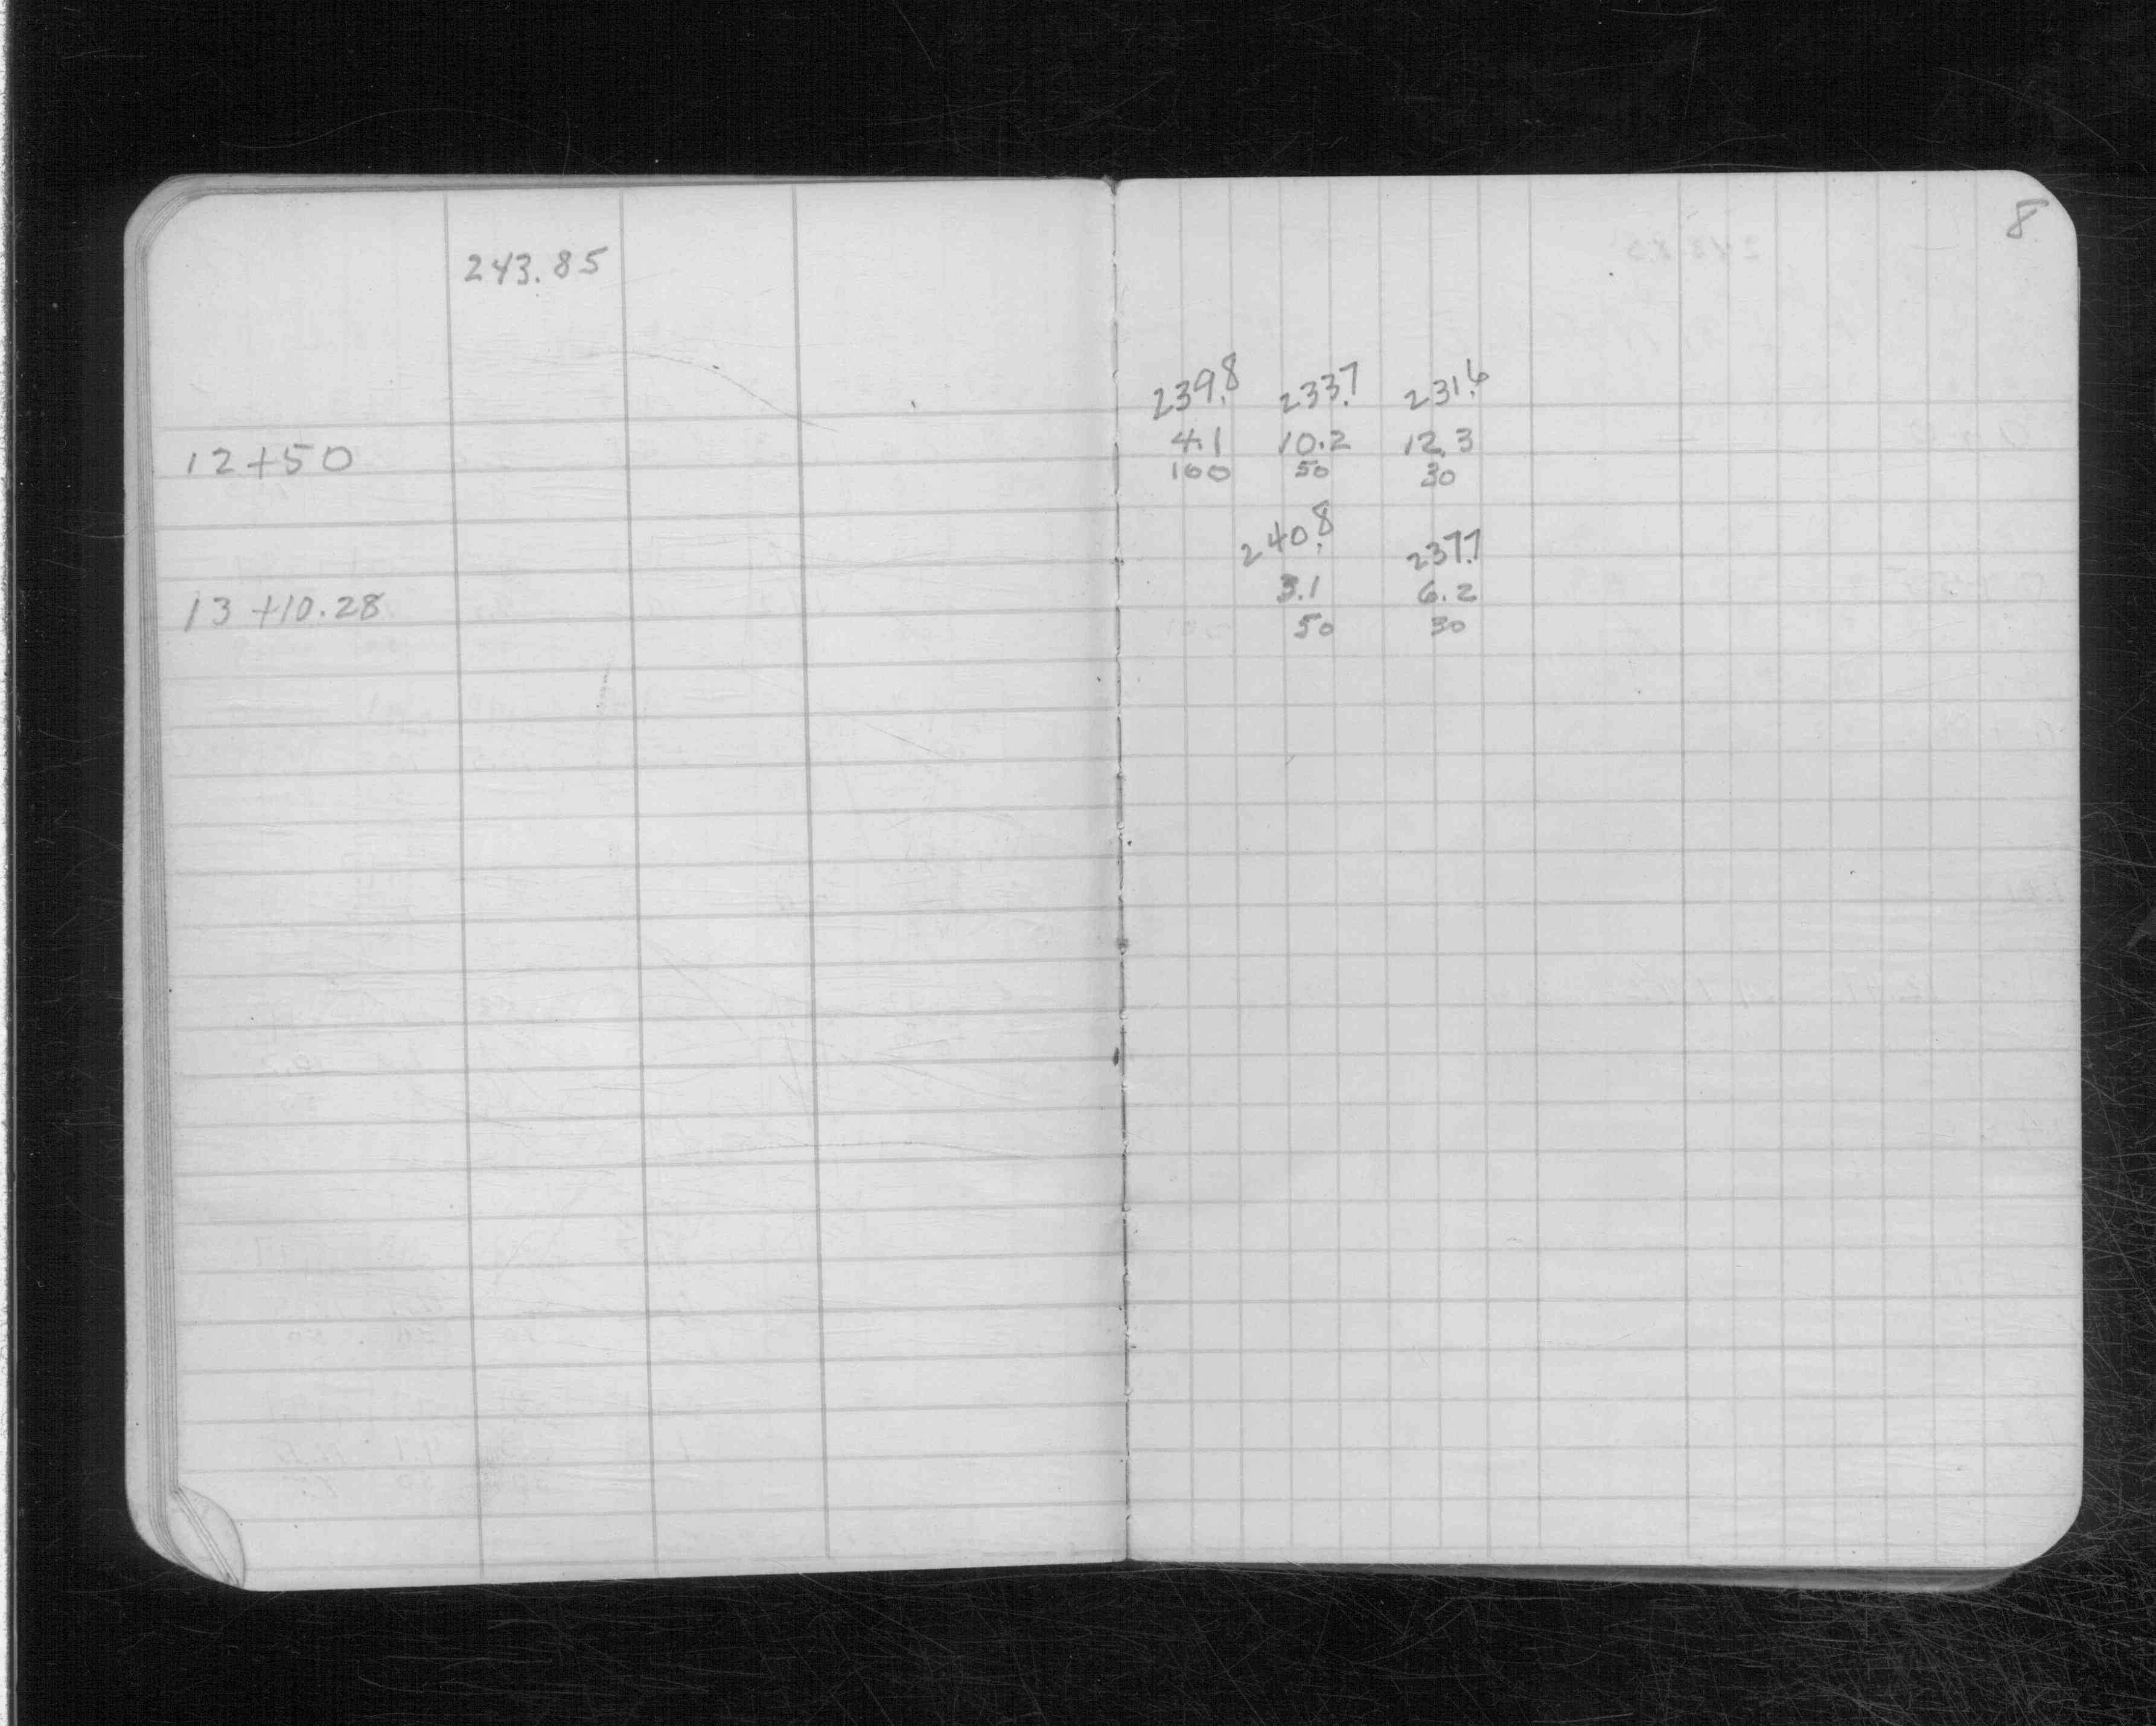 243.85
12+50
13+10.28
8
239.8 233.7 231.6
4.1 10.2 12.3
100 50 30
240.8 237.7
3.1 6.2
50 30